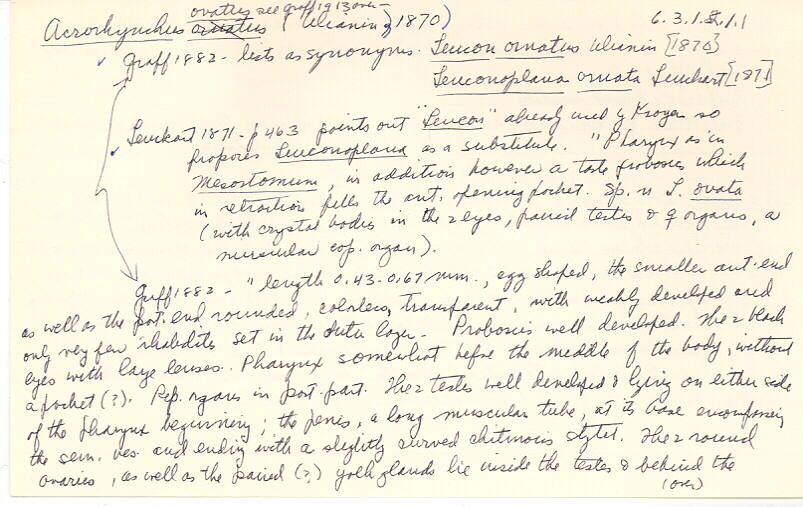 ovatus see graff 1913 over
Acrorhynchus ornatus (Ulianin, 1870) 6.3.1.8.1.1
Graff 1882 - lists as synonyms. Leucon ornatus Ulianin [1870]
Leuconoplana ornata Leuckart [1871]
Leuckart 1871 - p 463 points out "Leucon" already used by Kroyer so
proposes Leuconoplana as a substitute. "Pharynx as in
Mesostomum, in addition however a proboscis which
in retraction fills the ant. opening pocket. Sp. n L. ovata
(with crystal bodies in the 2 eyes, paired testes & ♀ organs, a
muscular cop. organ).
Graff 1882 - "length 0.43-0.67 mm., egg shaped, the smaller ant. end
as well as the post. end rounded, colorless, transparent, with weakly developed and
only very few rhabdites set in the outer layer. Proboscis well developed. The 2 black
eyes with large lenses. Pharynx somewhat before the middle of the body, without
a pocket (?). Rep. organs in post. part. The 2 testes well developed & lying on either side
of the pharynx beginning; the penis, a long muscular tube, at its base encompassing
the sem. ves. and ending with a slightly curved chitinous stylet. The 2 round
ovaries, as well as the paired (?) yolk glands lie inside the testes & behind the
(over)